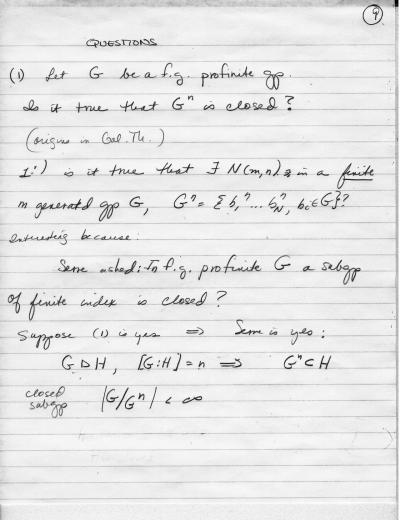 9
QUESTIONS
(1) Let G be a f.g. profinite gp.
Is it true that Gⁿ is closed?
(origins in Gal. Th.)
1') is it true that ∃ N(m,n) in a finite
m generated gp G, Gⁿ = {b₁ⁿ ... b_Nⁿ, bᵢ ∈ G}?
Interesting because:
Serre asked: In f.g. profinite G a subgp
of finite index is closed?
Suppose (1) is yes ⇒ Serre is yes:
G ▷ H, [G:H] = n ⇒ Gⁿ ⊂ H
closed
subgp |G/Gⁿ| < ∞